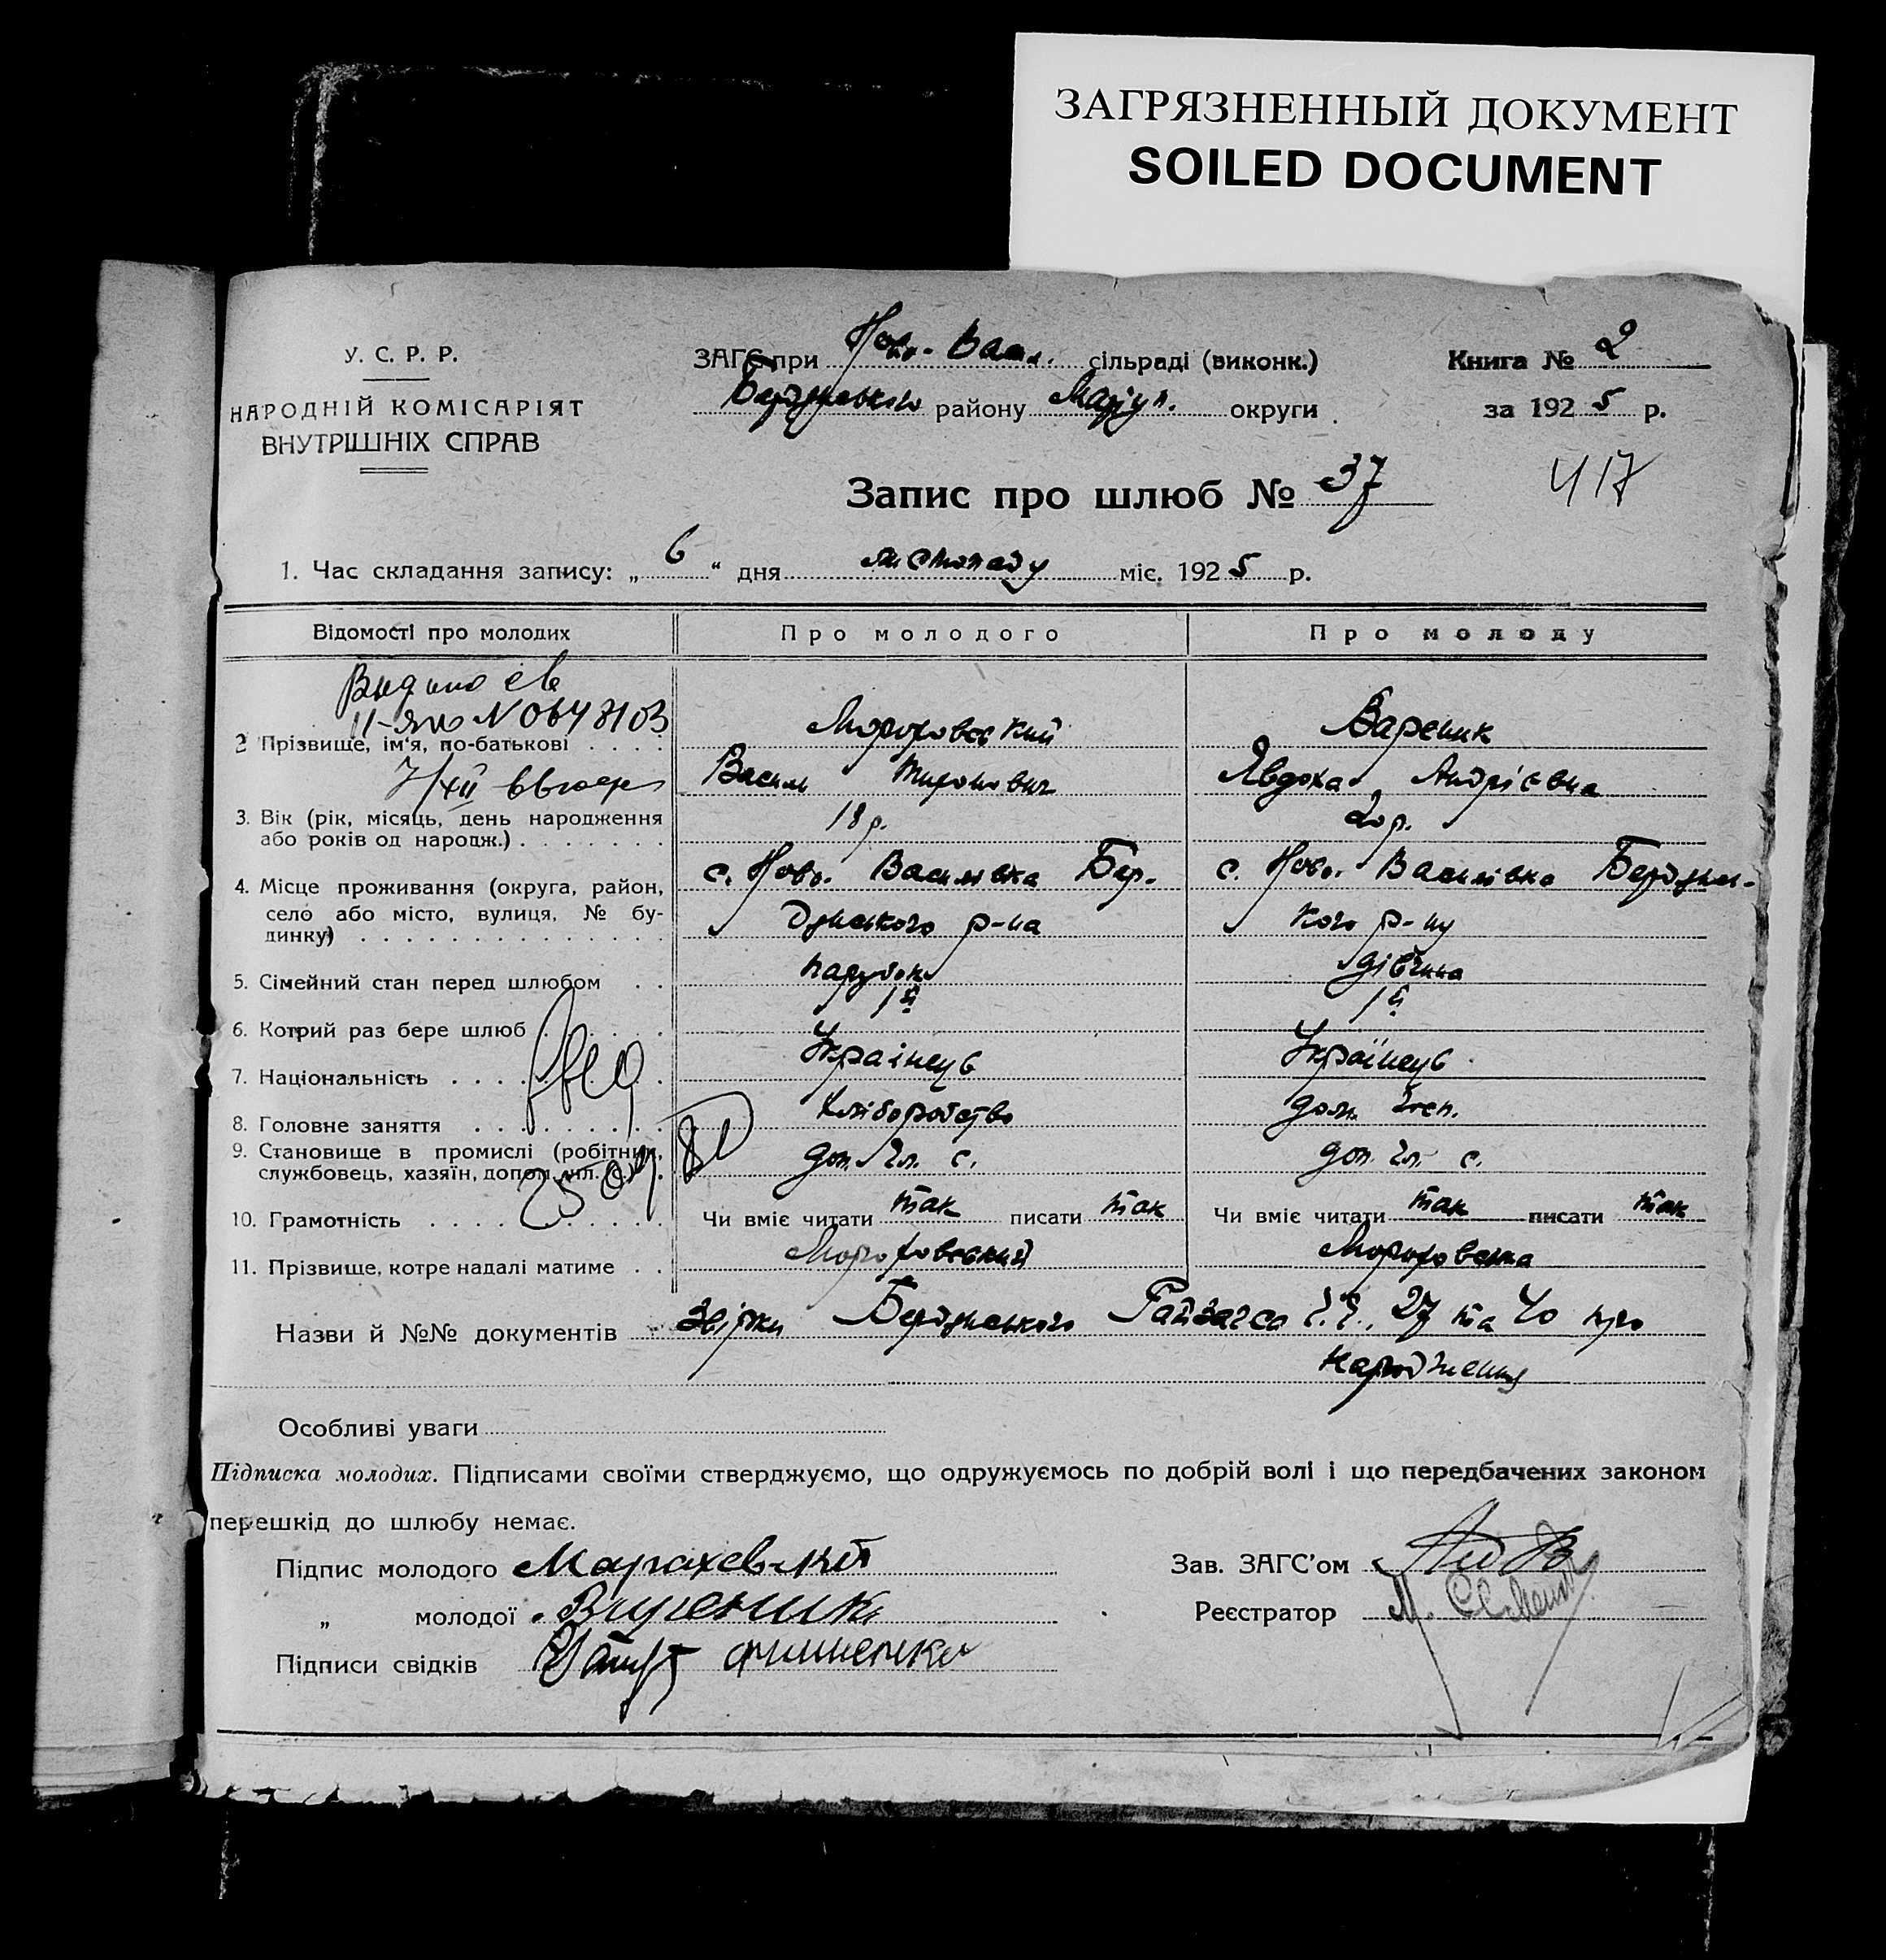 ЗАГРЯЗНЕННЫЙ ДОКУМЕНТ
SOILED DOCUMENT
У. С. Р. Р.
НАРОДНІЙ КОМІСАРІЯТ
ВНУТРІШНІХ СПРАВ
ЗАГС при Ново-Васил. сільраді (виконк.)
Бердянського району Маріуп. округи
Книга № 2
за 1925 р.
Запис про шлюб № 37
417
1. Час складання запису: „ 6 “ дня листопаду міс. 1925 р.
Відомості про молодих
Про молодого
Про молоду
Видано св
N 0648103
2 Прізвище, ім'я, по-батькові . . . .
Мороховський
Вареник
7/XII
Василь Миронович
Явдоха Андрієвна
3. Вік (рік, місяць, день народження
або років од народж.) . . . . . . .
18 р.
20 р.
4. Місце проживання (округа, район,
село або місто, вулиця, № бу-
динку) . . . . . . . . . . . . . .
с. Ново. Василівка Бер-
дянського р-на
с. Ново. Василівка Бердянс-
кого р-ну
5. Сімейний стан перед шлюбом . .
парубок
дівчина
6. Котрий раз бере шлюб . . . . . .
1й
1й
7. Національність . . . . . . . . . .
Українець
Українець
8. Головне заняття . . . . . . . . .
хліборобство
дом. госп.
9. Становище в промислі (робітник,
службовець, хазяїн, допом. чл. . . .
доп. чл. с.
доп. чл. с.
10. Грамотність . . . . . . . . . . .
Чи вміє читати так писати так
Чи вміє читати так писати так
11. Прізвище, котре надалі матиме . .
Мороховський
Мороховська
Назви й №№ документів Бердянського Райзагса ч.ч. 27 та 40 про
народження
Особливі уваги
Підписка молодих. Підписами своїми стверджуємо, що одружуємось по добрій волі і що передбачених законом
перешкід до шлюбу немає.
Підпис молодого Мараховский
„ молодої Вареник
Підписи свідків
Зав. ЗАГС'ом
Реєстратор